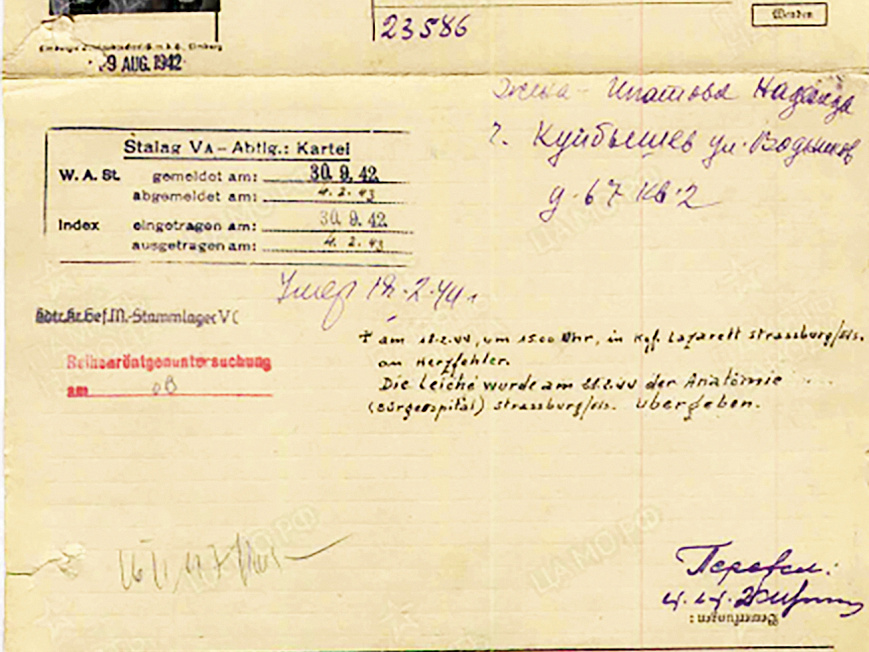 23586
Wenden
9 AUG. 1942
жена - Ипатова Надежда
г. Куйбышев ул. Водников
д. 67 кв. 2
Stalag VA – Abtlg.: Kartei
W. A. St. gemeldet am: 30. 9. 42
abgemeldet am: 4. 2. 43
Index eingetragen am: 30. 9. 42
ausgetragen am: 4. 2. 43
Умер 18.2.44 г
Kdtr.Kr.Gef.M.-Stammlager V C
† am 18.2.44, um 15.00 Uhr, in Kgf. Lazarett Strassburg/Els.
an Herzfehler.
Reihenröntgenuntersuchung
am
Die Leiche wurde am 21.2.44 der Anatomie
(Bürgerspital) Strassburg/Els. übergeben.
Перевел:
Bemerkungen:
ЦАМО РФ